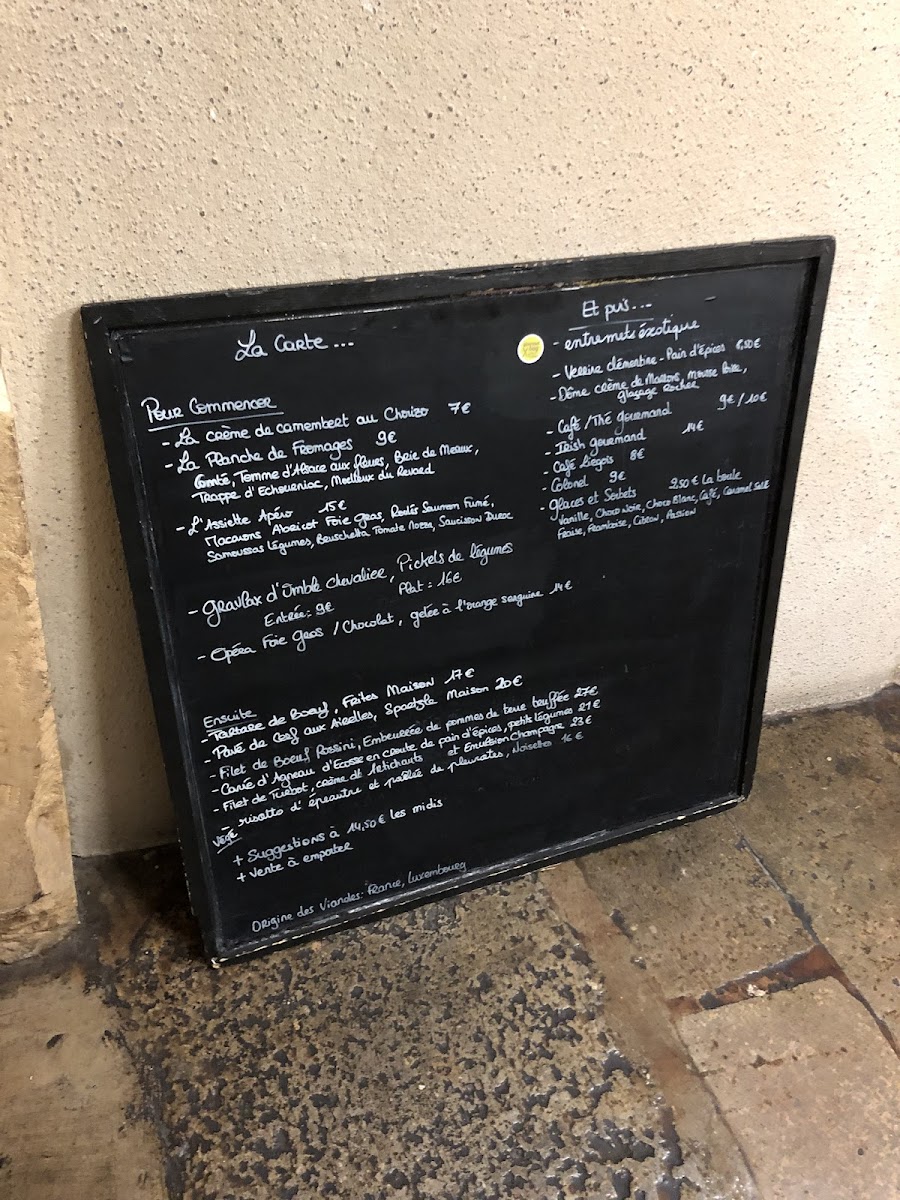 La Carte ...
Pour Commencer
- La crème de camembert au Chorizo 7€
- La Planche de Fromages 9€
Comté, Tomme d'Alsace aux fleurs, Brie de Meaux,
Trappe d'Echourgnac, Moelleux du Revard
- L'Assiette Apéro 15€
Macarons Abricot Foie gras, Roulés Saumon Fumé,
Samoussas légumes, Bruschetta Tomate Mozza, Saucisson Duroc
- gravlax d'Omble chevalier, Pickels de légumes
Entrée: 9€ Plat: 16€
- Opéra Foie gras / Chocolat, gelée à l'orange sanguine 14€
Ensuite
- Tartare de Boeuf, Frites Maison 17€
- Pavé de Cerf aux Airelles, Spaetzle Maison 20€
- Filet de Boeuf Rossini, Embeurrée de pommes de terre truffée 27€
- Carré d'Agneau d'Ecosse en croute de pain d'épices, petits légumes 21€
- Filet de Turbot, crème d'Artichauts et Emulsion Champagne 23€
végé - risotto d'épeautre et poêlée de pleurotes, Noisettes 16€
+ Suggestions à 14,50€ les midis
+ Vente à emporter
Origine des Viandes: France, Luxembourg
Et puis ...
- entremets éxotique
- Verrine clémentine - Pain d'épices 8,50€
- Dôme crème de Marrons, Mousse Poire,
glaçage Rocher
- Café / Thé gourmand 9€ / 10€
- Irish gourmand 14€
- Café liégois 8€
- Colonel 9€
- glaces et Sorbets 2,50€ La boule
Vanille, Choco Noir, Choco Blanc, Café, Caramel Salé
Fraise, Framboise, Citron, Passion